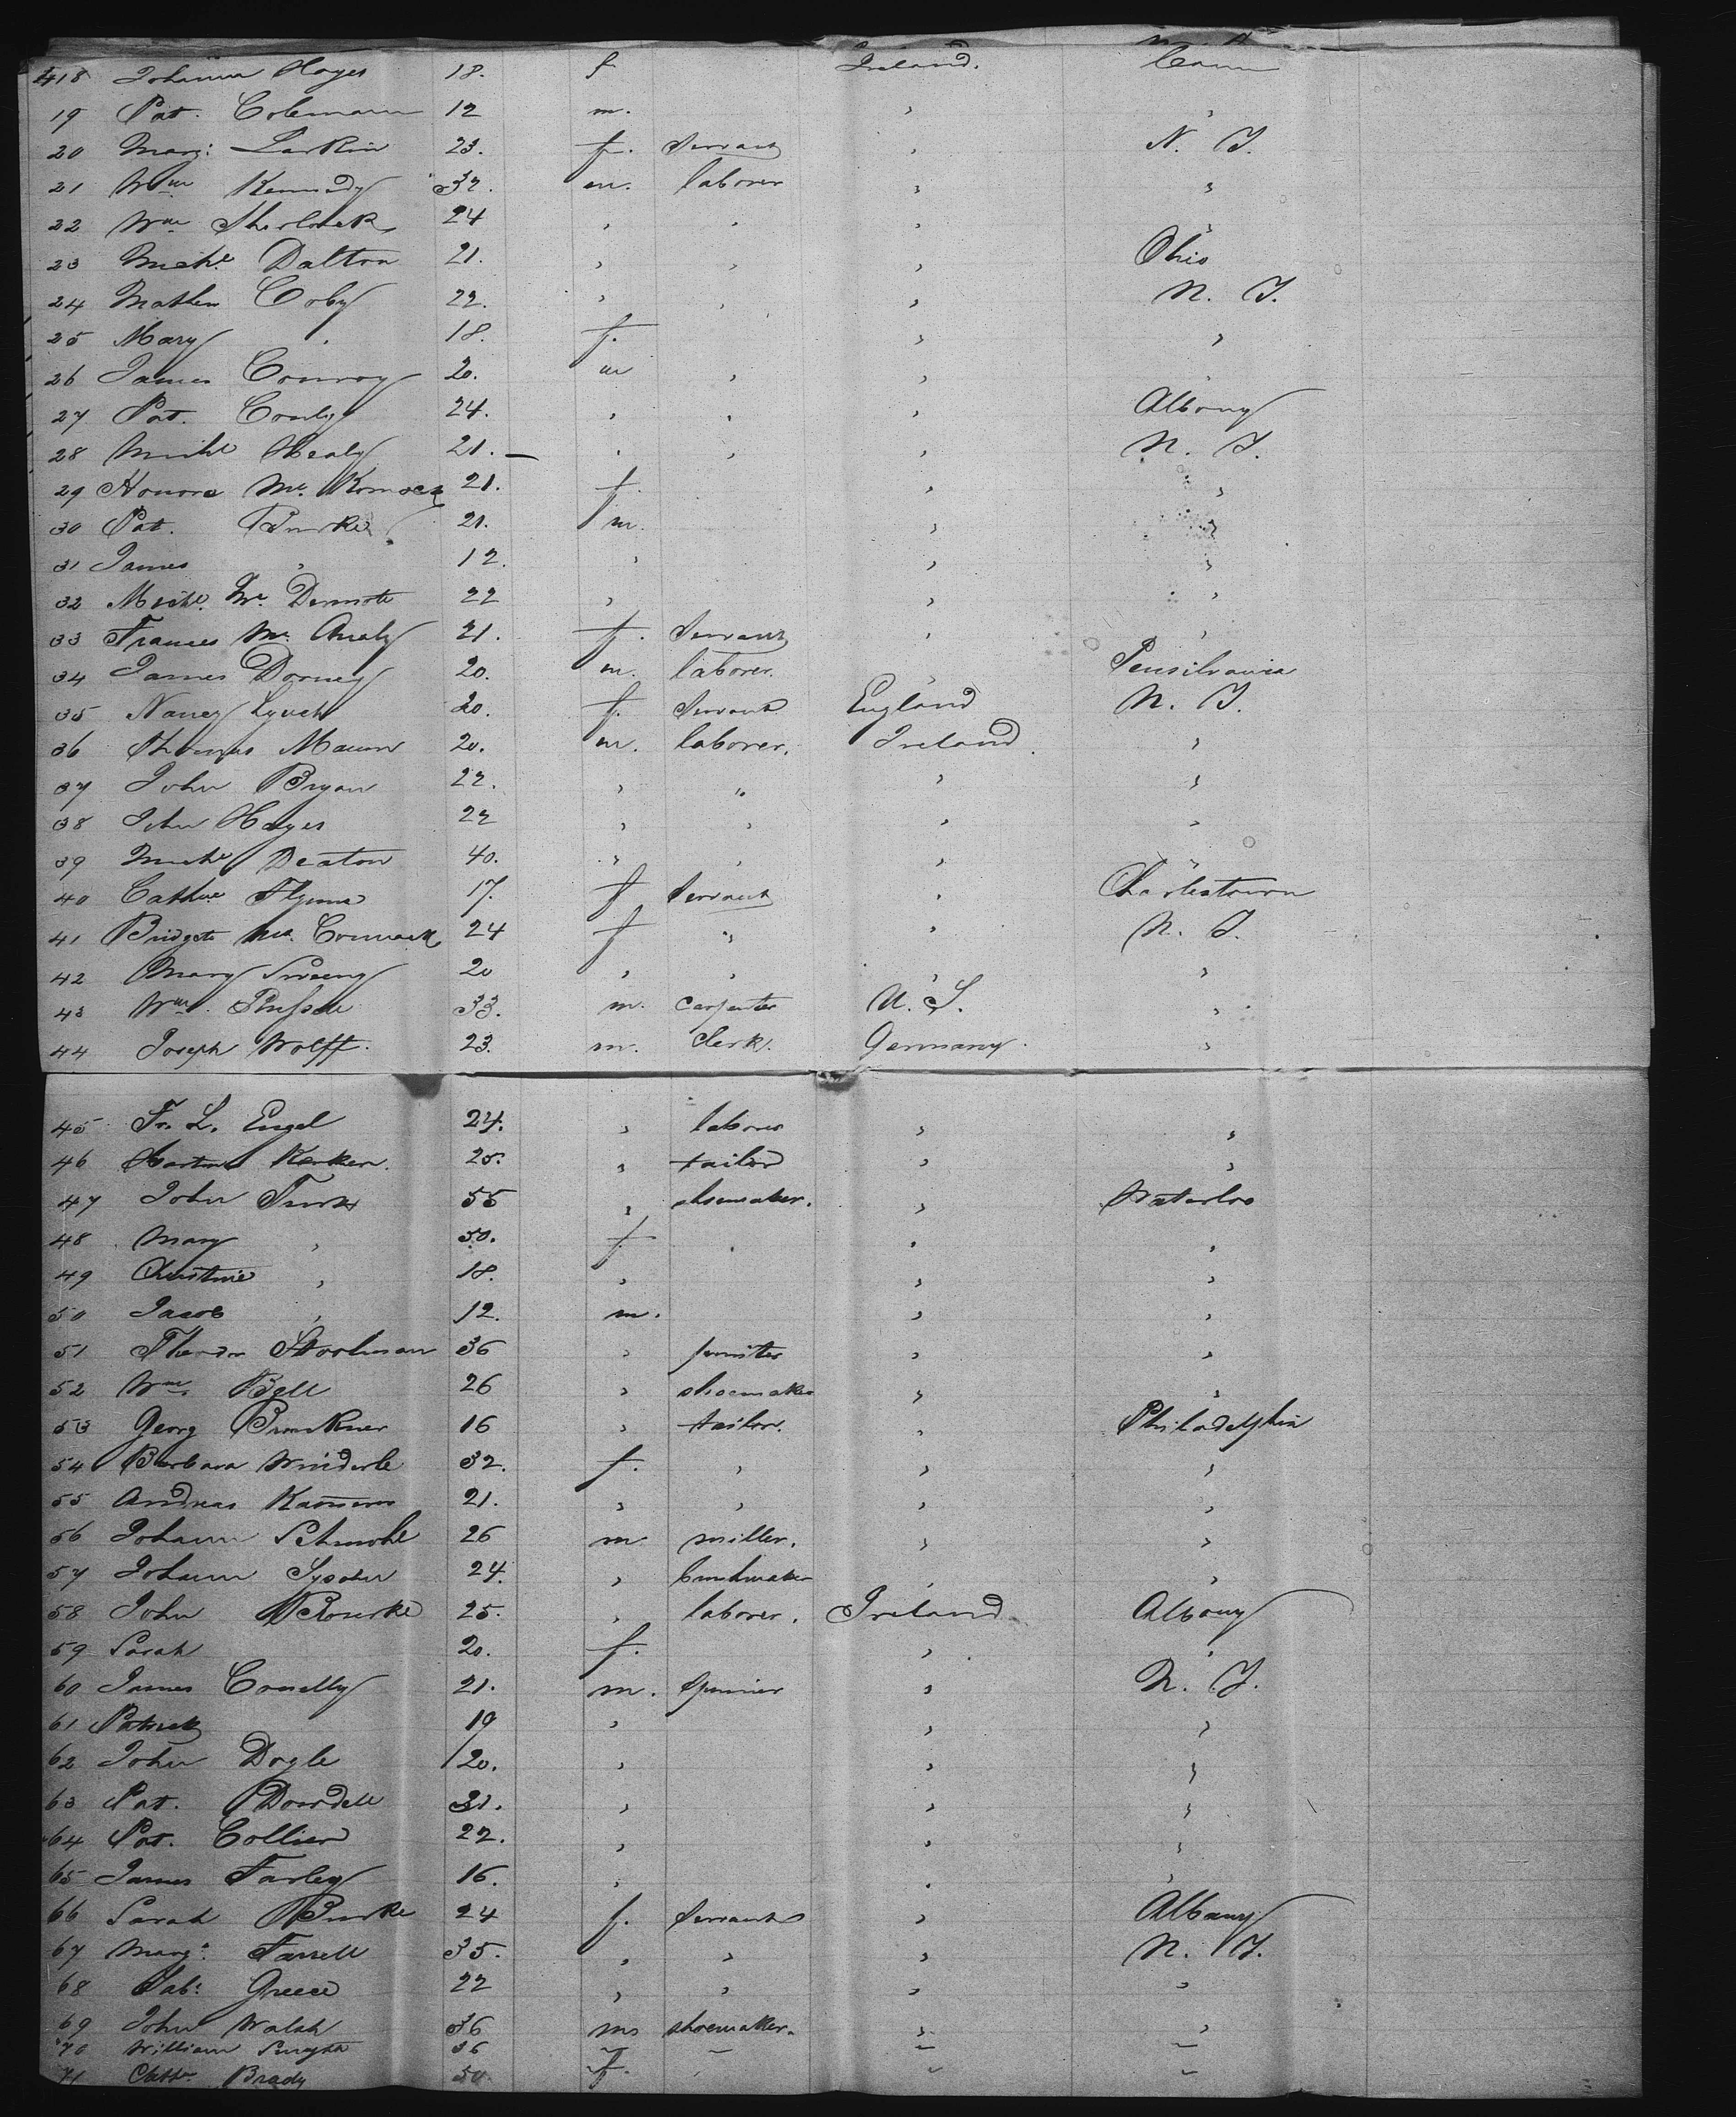 418 Johanna Hayes 18. f Ireland. Conn
19 Pat. Colemann 12 m. "
20 Marg: Larkin 23. f. Servant " N. Y.
21 Wm Kennedy 32. m. laborer " "
22 Wm Sherlock 24 " " "
23 Michl Dalton 21. " " " Ohio
24 Mathew Coby 22. " " " N. Y.
25 Mary " 18. f. " "
26 James Conroy 20. m " " "
27 Pat. Conly 24. " " " Albany
28 Michl Healy 21. — " " " N. Y.
29 Honora Mc 21. f. " "
30 Pat. Burke 21. m. " "
31 James " 12. " " "
32 Michl. Mc Dermott 22 " " "
33 Frances Mc Analy 21. f. Servant " "
34 James Dorney 20. m. laborer. " Pensilvania
35 Nancy Lynch 20. f. Servant England N. Y.
36 Thomas Mann 20. m. laborer. Ireland "
37 John Bryan 22. " " " "
38 John Hayes 22 " " " "
39 Michl Deaton 40. " " " "
40 Cathne Flynn 17. f Servant " Charlestown
41 Bridget Mc Cormack 24 f " " N. Y.
42 Mary Sweeny 20 " " " "
43 Wm. 33. m. carpenter U. S. "
44 Joseph Wolff. 23. m. Clerk. Germany. "
45 Fr. L. Engel 24. " laborer " "
46 Kerker. 25. " tailor " "
47 John Turk 55 " shoemaker. " Waterloo
48 Mary " 50. f. " " "
49 Christine " 18. " " "
50 Jacob " 12. m. " "
51 Theodor 36 " " "
52 Wm. Bell 26 " shoemaker " "
53 Georg 16 " tailor. " Philadelphia
54 Barbara Winderle 32. f. " " "
55 Andreas 21. " " " "
56 Johann Schmohl 26 m miller. " "
57 Johann 24. " " "
58 John Rourke 25. " laborer. Ireland Albany
59 Sarah 20. f. " "
60 James Connelly 21. m. Spinner " N. Y.
61 Patrick 19 " " "
62 John Dogle 20. " " "
63 Pat. Dowdell 21. " " "
64 Pat. Collier 22. " " "
65 James Farley 16. " " "
66 Sarah Burke 24 f. Servant " Albany
67 Marg: Farrell 35. " " " N. Y.
68 Greece 22 " " " "
69 John Walsh 36 m shoemaker. " "
70 William Smyth 36 " " " "
71 Cathn Brady 50 f. " " "